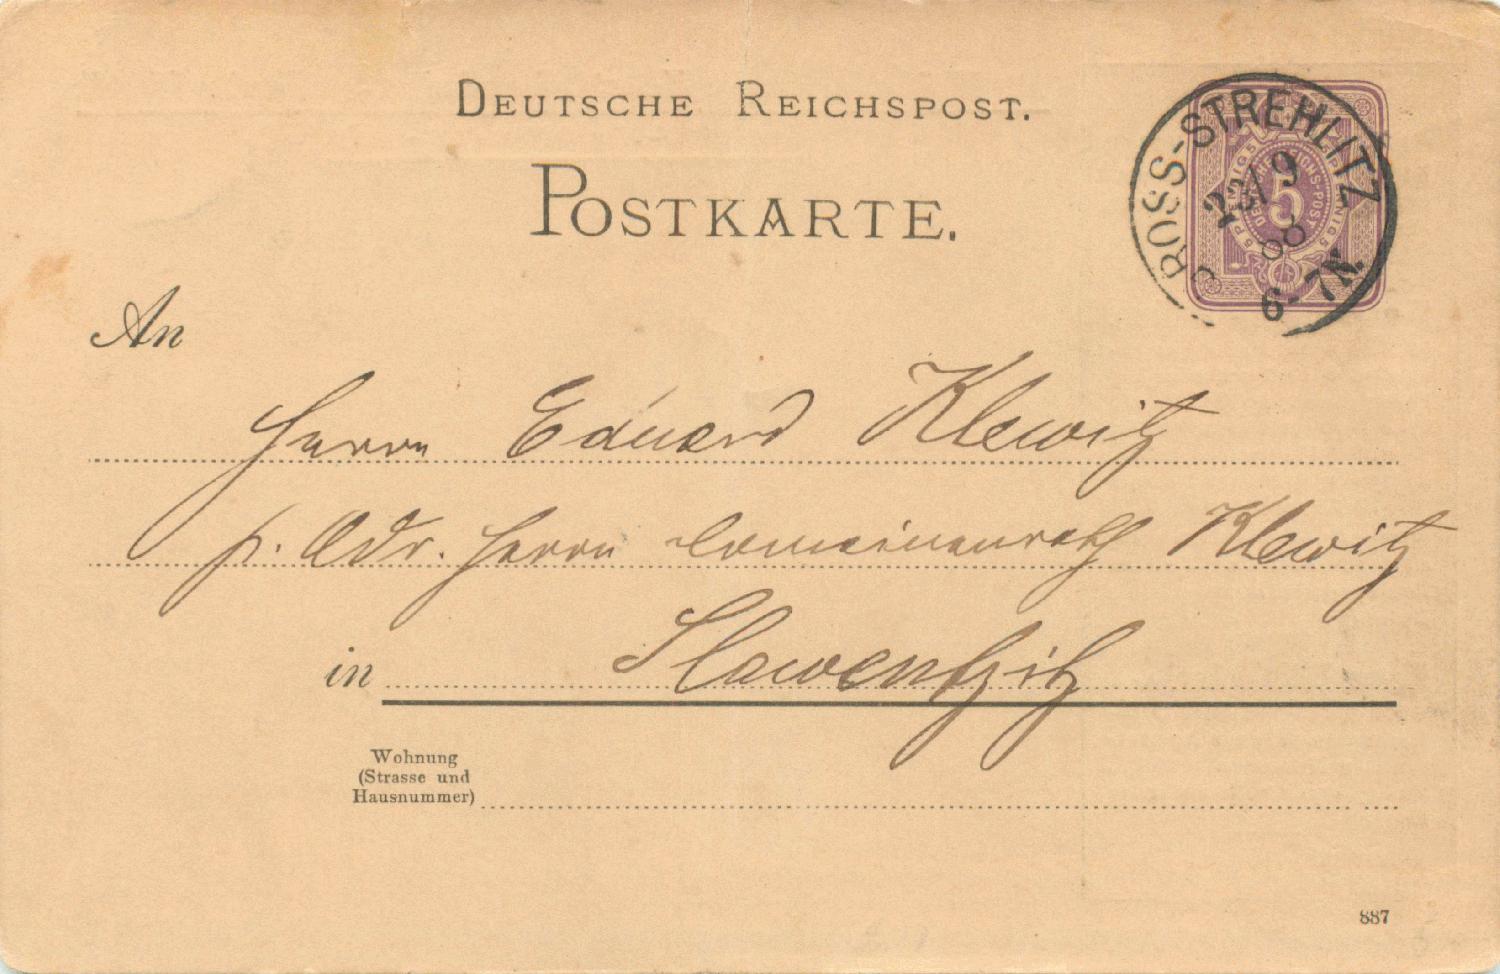 DEUTSCHE REICHSPOST.
POSTKARTE.
GROSS-STREHLITZ
23/9
88
6-7N.
5
An
Herrn Eduard Klewitz
p. Adr. Herrn Domainenrath Klewitz
in Slawentzitz
Wohnung
(Strasse und
Hausnummer)
887